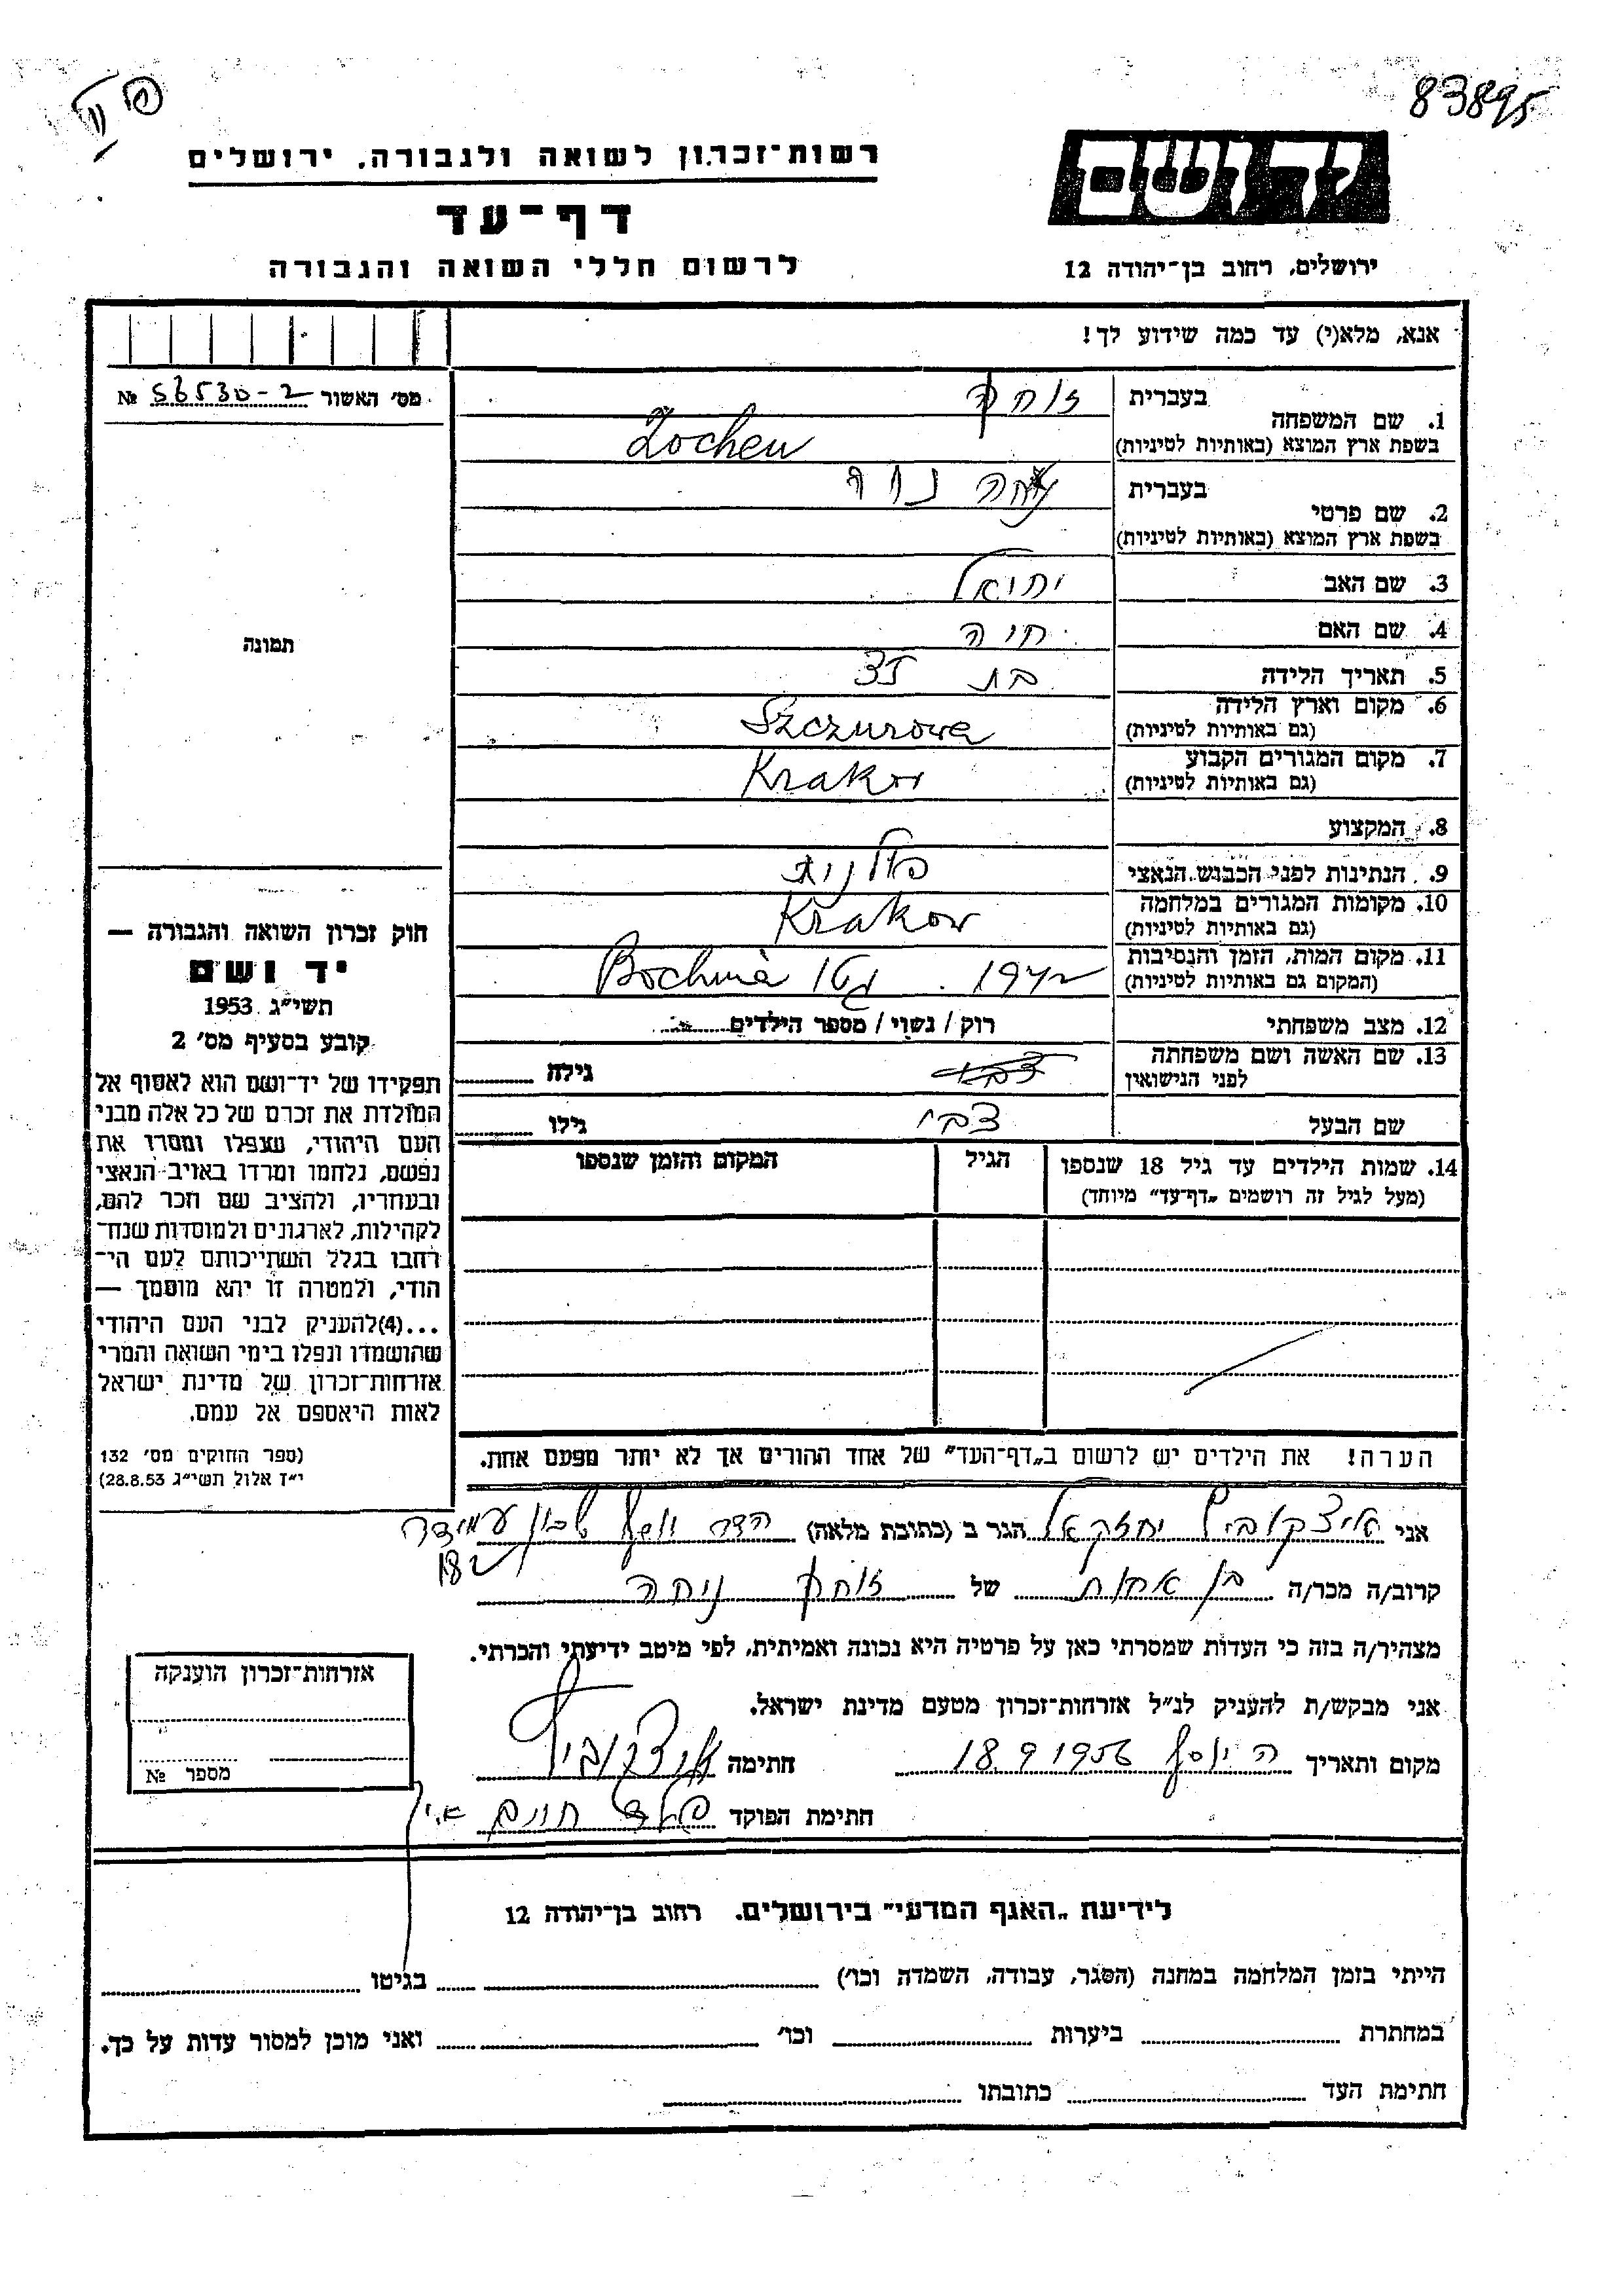 83895
רשות־זכרון לשואה ולגבורה, ירושלים
יד ושם
דף־עד
לרשום חללי השואה והגבורה
ירושלים, רחוב בן־יהודה 12
אנא, מלא(י) עד כמה שידוע לך!
מס׳ האשור 56530-2 №
1. שם המשפחה
בעברית
בשפת ארץ המוצא (באותיות לטיניות) Zochen
2. שם פרטי
בעברית
בשפת ארץ המוצא (באותיות לטיניות)
3. שם האב יחיאל
4. שם האם חיה
5. תאריך הלידה בת 35
6. מקום וארץ הלידה Szczurowa
(גם באותיות לטיניות)
7. מקום המגורים הקבוע Krakow
(גם באותיות לטיניות)
8. המקצוע
9. הנתינות לפני הכבוש הנאצי פולנית
10. מקומות המגורים במלחמה Krakow
(גם באותיות לטיניות)
11. מקום המות, הזמן והנסיבות 1942 . גטו Bochnia
(המקום גם באותיות לטיניות)
12. מצב משפחתי רוק / נשוי / מספר הילדים
13. שם האשה ושם משפחתה גילה
לפני הנישואין
שם הבעל צבי גילו
14. שמות הילדים עד גיל 18 שנספו
(מעל לגיל זה רושמים „דף־עד” מיוחד)
הגיל
המקום והזמן שנספו
הערה! את הילדים יש לרשום ב„דף־העד” של אחד ההורים אך לא יותר מפעם אחת.
תמונה
חוק זכרון השואה והגבורה —
יד ושם
תשי״ג 1953
קובע בסעיף מס׳ 2
תפקידו של יד־ושם הוא לאסוף אל
המולדת את זכרם של כל אלה מבני
העם היהודי, שנפלו ומסרו את
נפשם, נלחמו ומרדו באויב הנאצי
ובעוזריו, ולהציב שם וזכר להם,
לקהילות, לארגונים ולמוסדות שנח־
רבו בגלל השתייכותם לעם הי־
הודי, ולמטרה זו יהא מוסמך —
...(4)להעניק לבני העם היהודי
שהושמדו ונפלו בימי השואה והמרי
אזרחות־זכרון של מדינת ישראל
לאות היאספם אל עמם.
(ספר החוקים מס׳ 132
י״ז אלול תשי״ג 28.8.53)
אני איצקוביץ יחזקאל הגר ב (כתובת מלאה) הדר יוסף שכון עמידר
182
קרוב/ה מכר/ה בן אחות של
מצהיר/ה בזה כי העדות שמסרתי כאן על פרטיה היא נכונה ואמיתית, לפי מיטב ידיעתי והכרתי.
אני מבקש/ת להעניק לנ״ל אזרחות־זכרון מטעם מדינת ישראל.
מקום ותאריך ה יוסף 18.9 1956 חתימה איצקוביץ
חתימת הפוקד
אזרחות־זכרון הוענקה
מספר №
לידיעת „האגף המדעי” בירושלים. רחוב בן־יהודה 12
הייתי בזמן המלחמה במחנה (הסגר, עבודה, השמדה וכו׳) בגיטו
במחתרת ביערות וכו׳ ואני מוכן למסור עדות על כך.
חתימת העד כתובתו